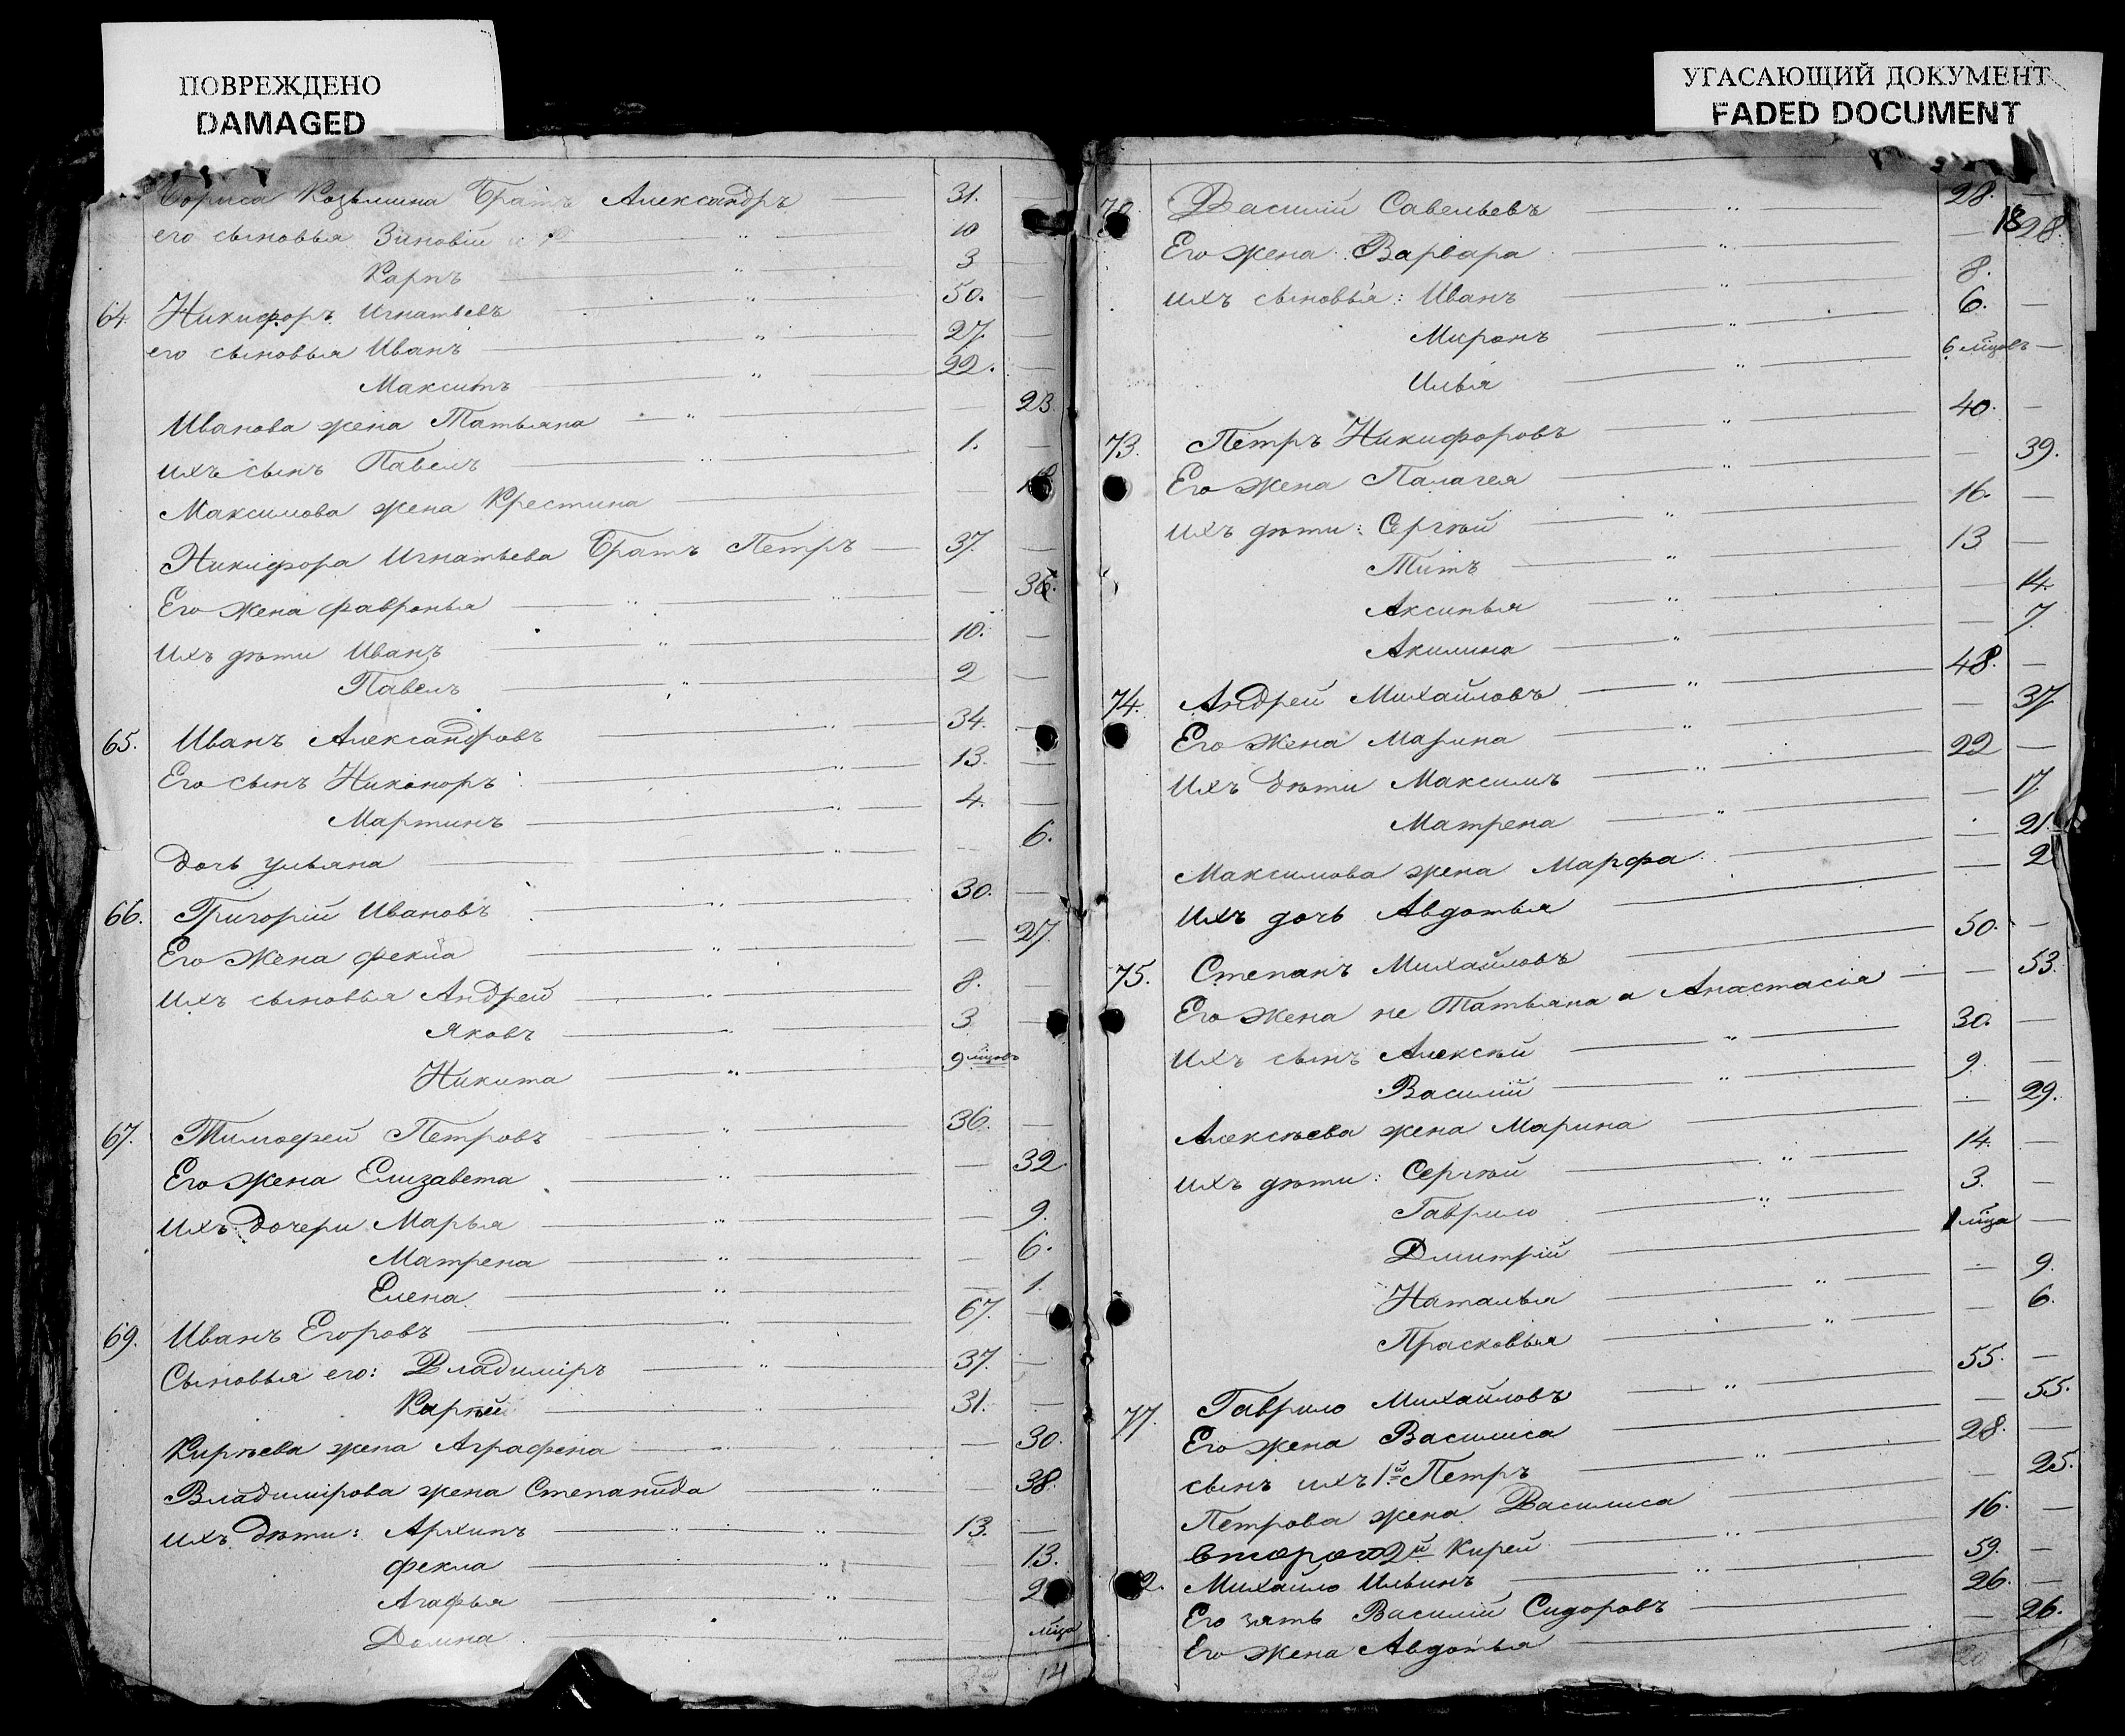 ПОВРЕЖДЕНО
DAMAGED
Бориса Козьмина Братъ Александръ 31.
его сыновья Зиновій 10
Карпъ 3
64 Никифоръ Игнатьевъ 50.
его сыновья Иванъ 27.
Максимъ 22.
Иванова жена Татьяна 23.
ихъ сынъ Павелъ 1.
Максимова жена Крестина
Никифора Игнатьева Братъ Петръ 37.
Его жена Февронья
Ихъ дѣти Иванъ 10.
Павелъ 2
65. Иванъ Александровъ 34.
Его сынъ Никоноръ 13.
Мартинъ 4.
дочь Ульяна 6.
66. Григорій Ивановъ 30.
Его жена Фекла 27.
Ихъ сыновья Андрей 8.
Яковъ 3
Никита 9 м҃цовъ
67. Тимофей Петровъ 36.
Его жена Елизавета 32
Ихъ дочери Марья 9.
Матрена 6.
Елена 1.
69. Иванъ Егоровъ 67.
Сыновья его: Владиміръ 37.
Кирѣй 31.
Кирѣева жена Аграфена 30.
Владимірова жена Степанида 38.
ихъ дѣти: Архипъ 13.
Фекла 13.
Агафья 2
Домна м҃ца
14
УГАСАЮЩИЙ ДОКУМЕНТ
FADED DOCUMENT
18
Василій Савельевъ 28.
Его жена Варвара 28.
ихъ сыновья: Иванъ 8.
Миронъ 6.
Илья 6 м҃цовъ
73. Петръ Никифоровъ 40.
Его жена Палагея 39.
ихъ дѣти: Сергѣй 16.
Титъ 13
Аксинья 14.
Акилина 7.
74. Андрей Михайловъ 48.
Его жена Марина 37.
Ихъ дѣти Максимъ 22
Матрена 17.
Максимова жена Марфа 21.
Ихъ дочь Авдотья 2
75. Степанъ Михайловъ 50.
Его жена не Татьяна а Анастасія 53.
Ихъ сынъ Алексѣй 30.
Василій 9.
Алексѣева жена Марина 29.
ихъ дѣти: Сергѣй 14.
Гаврило 3.
Дмитрій 1 м҃ца
Наталья 9.
Прасковья 6.
77. Гаврило Михайловъ 55.
Его жена Василиса 55.
сынъ ихъ 1й Петръ 28.
Петрова жена Василиса 25.
второй 2й Кирей 16.
Михайло Ильинъ 59.
Его зять Василій Сидоровъ 26.
Его жена Авдотья 26.